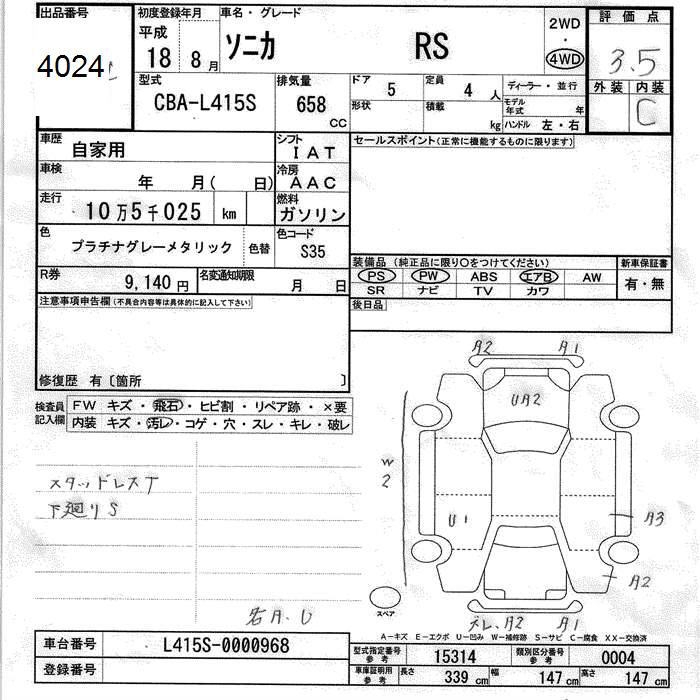 出品番号 初度登録年月 車名・グレード 2WD 評価点
平成 ・
4024 18 8月 ソニカ RS 4WD 3.5
型式 排気量 ドア 5 定員 4人 ディーラー・並行 外装 内装
CBA-L415S 658 CC 形状 積載 kg モデル年式 年 C
ハンドル 左・右
車歴 自家用 シフト IAT セールスポイント(正常に機能するものに限ります)
車検 年 月( 日) 冷房 AAC
走行 10万5千025 km 燃料 ガソリン
色 プラチナグレーメタリック 色替 色コード S35
装備品(純正品に限り○をつけてください) 新車保証書
R券 9,140円 名変通知期限 月 日 PS PW ABS エアB AW 有・無
SR ナビ TV カワ
注意事項申告欄(不具合内容等は具体的に記入して下さい) 後日品
修復歴 有〔箇所 〕
検査員記入欄 FW キズ・飛石・ヒビ割・リペア跡・×要
内装 キズ・汚レ・コゲ・穴・スレ・キレ・破レ
A2 A1
UA2
W2
スタッドレスT
下廻りS
U1 A3
A2
スペア
名A.U
A2 A1
A-キズ E-エクボ U-凹み W-補修跡 S-サビ C-腐食 XX-交換済
車台番号 L415S-0000968 型式指定番号参考 15314 類別区分番号参考 0004
登録番号 車庫証明用参考 長さ 339cm 幅 147cm 高さ 147cm